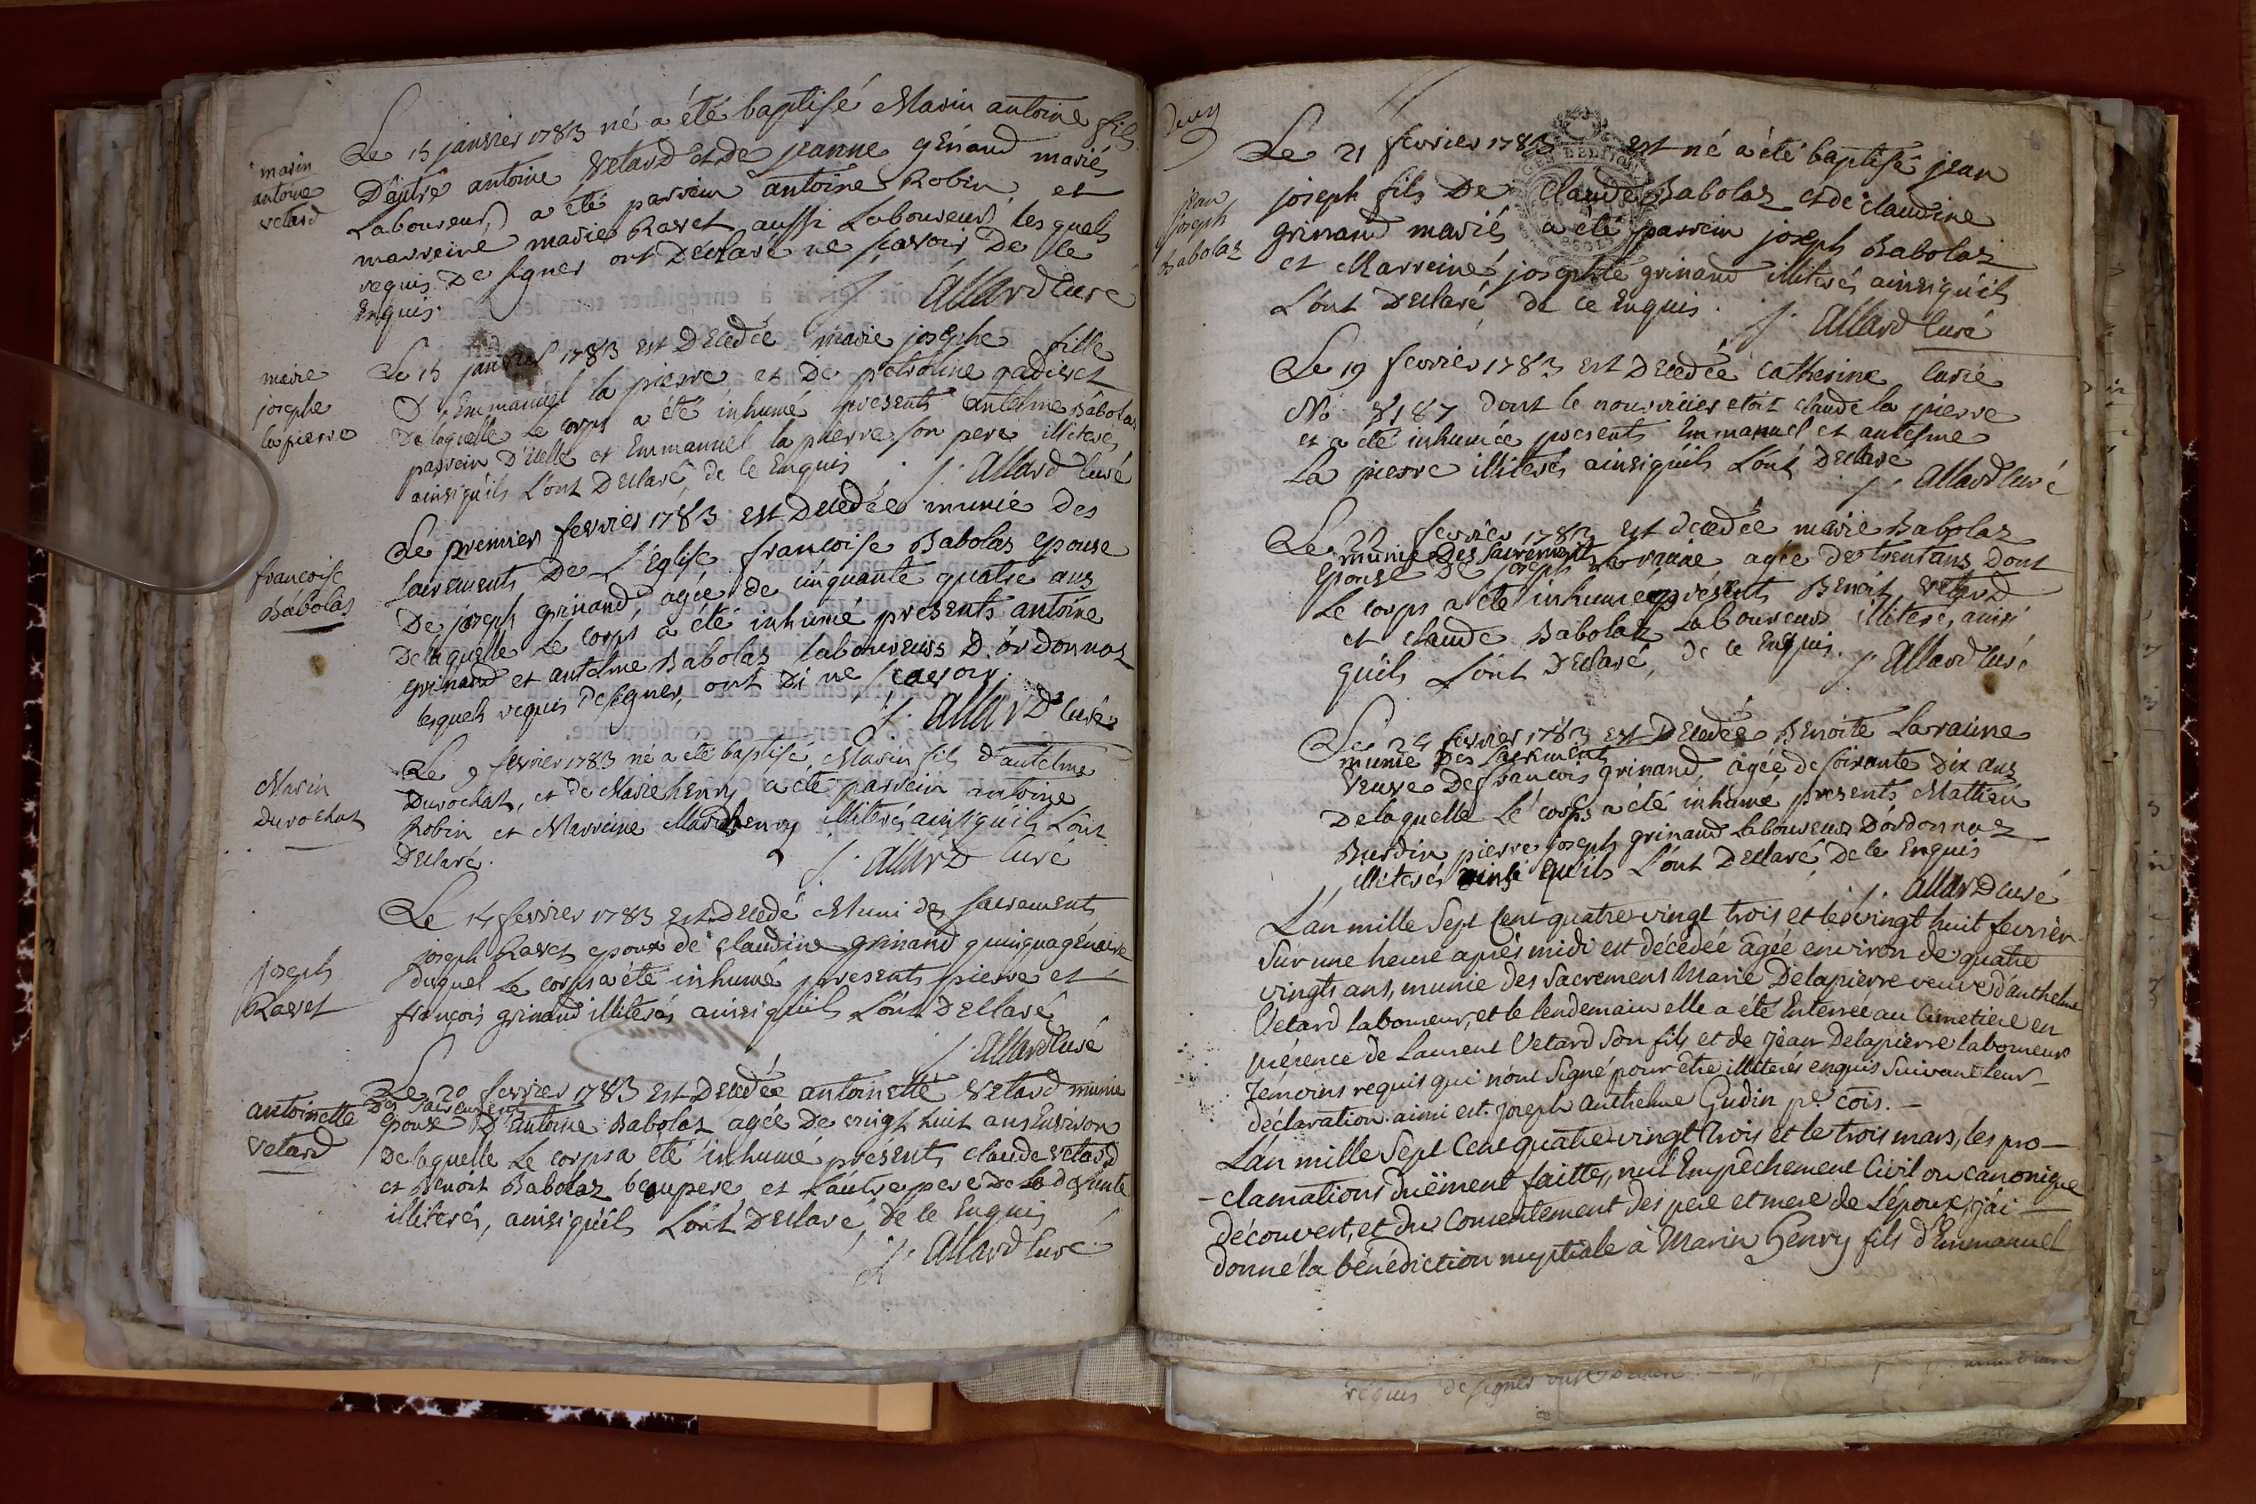 marin
antoine
vetard
Le 15 janvier 1783 né a été baptisé Marin antoine fils
D'autre antoine vetard et de jeanne génaud mariés
Laboureurs, a été parrein antoine Robin et
marreine marie Ravet aussi Laboureurs, lesquels
requis De signer ont Déclaré ne sçavoir De ce
Enquis.
j. allard curé
marie
josephe
la pierre
Le 15 janvier 1783 est Décédée marie josephe fille
D'Emmanuel la pierre et De petroline gadieret
De laquelle Le corps a été inhumé présents antelme Babolas
parrein D'icelle et Emmanuel la pierre son pere illiterés
ainsi qu'ils L'ont Déclaré, de ce Enquis
j. allard curé
francoise
Babolas
Le premier fevrier 1783 est Décédée munie des
sacrements De L'Eglise francoise Babolas epouse
De joseph grinand, agée de cinquante quatre ans
De laquelle Le corps a été inhumé présents antoine
grinand et antelme Babolas laboureurs D'ordonnaz
lesquels requis de signer, ont Di ne sçavoir.
j. allard curé
Marin
Durochat
Le 9 fevrier 1783 né a été baptisé Marin fils d'antelme
Durochat, et de Marie henry a été parrein antoine
Robin et Marreine Marie henry illiterés ainsi qu'ils L'ont
Déclaré.
j. allard curé
joseph
Ravet
Le 14 fevrier 1783 est Décédé Muni des sacrements
joseph Ravet epoux de claudine grinand quinquagénaire
duquel Le corps a été inhumé présents pierre et
françois grinand illiterés ainsi qu'ils L'ont Déclaré
j. allard curé
antoinette
vetard
Le 20 fevrier 1783 est Décédée antoinette vetard munie
Des sacrements
epouse D'antoine Babolaz agée De vingt huit ans Environ
De laquelle Le corps a été inhumé présents claude vetard
et Benoit Babolaz beaupere, et L'autre pere De La defunte
illiterés, ainsi qu'ils L'ont Déclaré, De ce Enquis
j. allard curé
jean
joseph
Babolaz
Le 21 fevrier 1783 est né a été baptisé jean
joseph fils De claude Babolaz et de claudine
grinand mariés a été parrein joseph Babolaz
et Marreine josephte grinand illiterés ainsi qu'ils
L'ont Déclaré de ce Enquis.
j. allard curé
Le 19 fevrier 1783 est Décédée catherine curié
No 8187 dont le nourricier etoit claude la pierre
et a été inhumée présents Emmanuel et antelme
La pierre illiterés ainsi qu'ils L'ont Déclaré
j. allard curé
Le 22 fevrier 1783 est décédée marie Babolaz
munie Des sacrements
epouse De joseph Lorraine agée de trent ans Dont
Le corps a été inhumé présents Benoit vetard
et claude Babolaz Laboureurs illiterés, ainsi
qu'ils L'ont Déclaré, de ce Enquis.
j. allard curé
Le 24 fevrier 1783 est Décédée Benoite Lorraine
munie Des sacrements
veuve De francois grinand, agée de soixante Dix ans
De laquelle Le corps a été inhumé présents Mathieu
Burdin pierre joseph grinand Laboureurs D'ordonnaz
illiterés ainsi qu'ils L'ont Déclaré De ce Enquis
j. allard curé
L'an mille Sept Cent quatre vingt trois et le vingt huit fevrier
sur une heure après midi est décédée âgée environ de quatre
vingts ans, munie des Sacremens Marie Delapierre veuve d'anthelme
Vetard laboureur, et le lendemain elle a été Enterrée au Cimetiere en
présence de Laurent Vetard son fils et de Jean Delapierre laboureurs
Temoins requis qui n'ont Signé pour être illiterés enquis Suivant leur
déclaration. ainsi est. Joseph Anthelme Gudin p.e cois. —
L'an mille Sept Cent quatre vingt trois et le trois mars, les pro—
—clamations duëment faittes, nul Empêchement Civil ou canonique
découvert, et du Consentement des pere et mere de L'époux, j'ai
donné la bénédiction nuptiale à Marin Henry fils d'Emmanuel